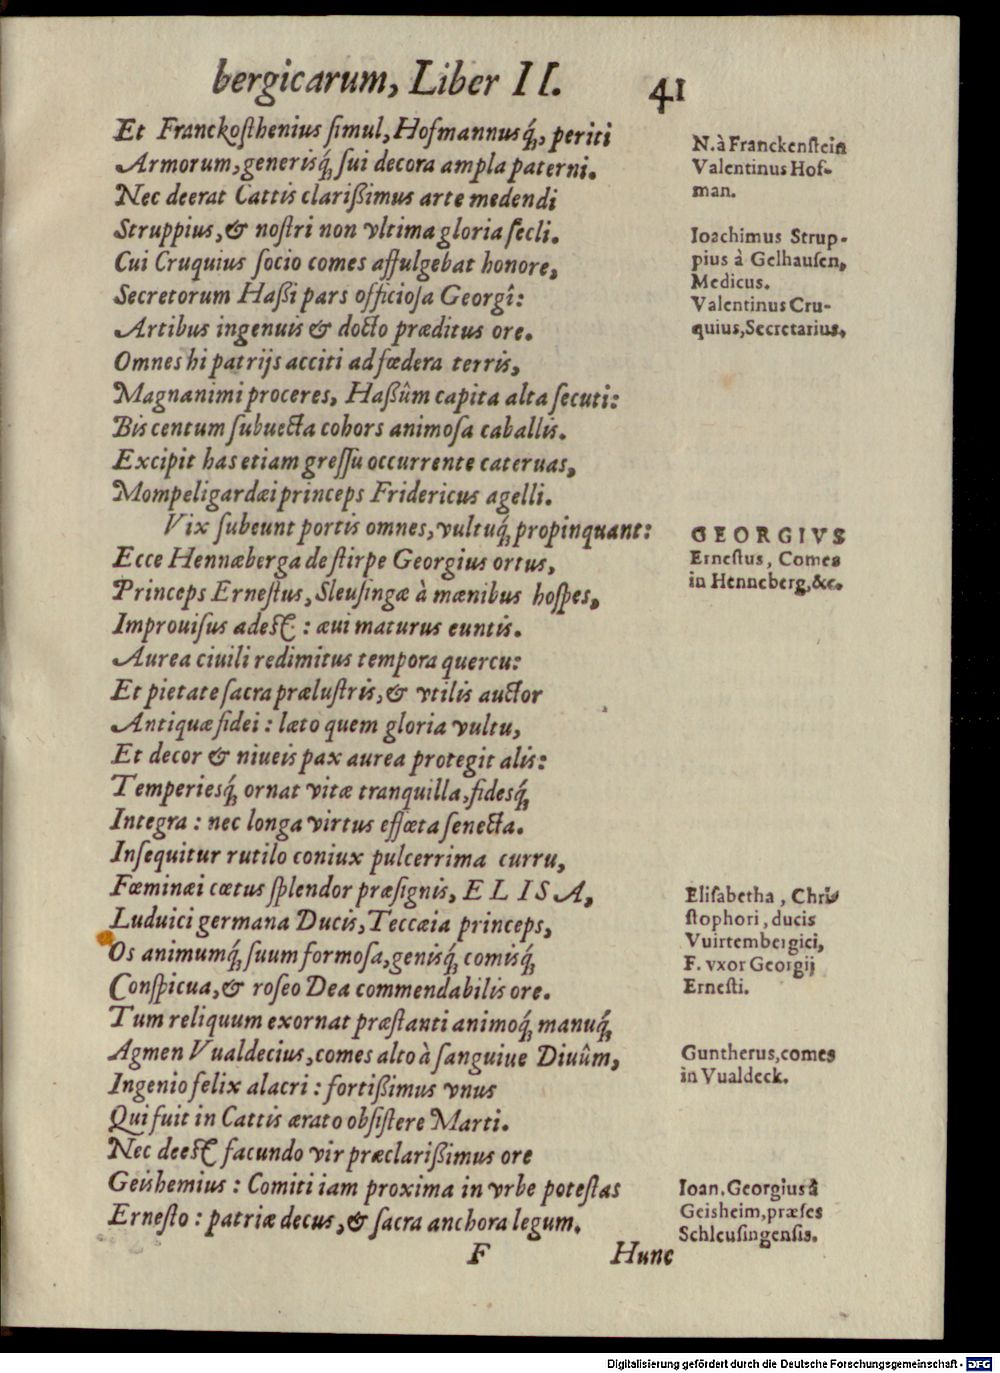 bergicarum, Liber II. 41
Et Franckosthenius simul, Hofmannusq́;, periti
Armorum, generisq́; sui decora ampla paterni.
Nec deerat Cattis clarißimus arte medendi
Struppius, & nostri non vltima gloria secli.
Cui Cruquius socio comes affulgebat honore,
Secretorum Haßi pars officiosa Georgî:
Artibus ingenuis & docto præditus ore.
Omnes hi patrijs acciti ad fœdera terris,
Magnanimi proceres, Haßûm capita alta secuti:
Bis centum subuecta cohors animosa caballis.
Excipit has etiam gressu occurrente cateruas,
Mompeligardæi princeps Fridericus agelli.
Vix subeunt portis omnes, vultuq́; propinquant:
Ecce Hennæberga de stirpe Georgius ortus,
Princeps Ernestus, Sleusingæ à mænibus hospes,
Improuisus adest : æui maturus euntis.
Aurea ciuili redimitus tempora quercu:
Et pietate sacra prælustris, & vtilis auctor
Antiquæ fidei : læto quem gloria vultu,
Et decor & niueis pax aurea protegit alis:
Temperiesq́; ornat vitæ tranquilla, fidesq́;
Integra : nec longa virtus effœta senecta.
Insequitur rutilo coniux pulcerrima curru,
Fœminæi cœtus splendor præsignis, ELISA,
Luduici germana Ducis, Teccæia princeps,
Os animumq́; suum formosa, genisq́; comisq́;
Conspicua, & roseo Dea commendabilis ore.
Tum reliquum exornat præstanti animoq́; manuq́;
Agmen Vualdecius, comes alto à sanguiue Diuûm,
Ingenio felix alacri : fortißimus vnus
Qui fuit in Cattis ærato obsistere Marti.
Nec deest facundo vir præclarißimus ore
Geishemius : Comiti iam proxima in vrbe potestas
Ernesto : patriæ decus, & sacra anchora legum.
F Hunc
N. à Franckenstein
Valentinus Hof-
man.
Ioachimus Strup-
pius à Gelhausen,
Medicus.
Valentinus Cru-
quius, Secretarius.
GEORGIVS
Ernestus, Comes
in Henneberg, &c.
Elisabetha, Chri
stophori, ducis
Vuirtembergici,
F. vxor Georgij
Ernesti.
Guntherus, comes
in Vualdeck.
Ioan. Georgius à
Geisheim, præses
Schleusingensis.
Digitalisierung gefördert durch die Deutsche Forschungsgemeinschaft - DFG